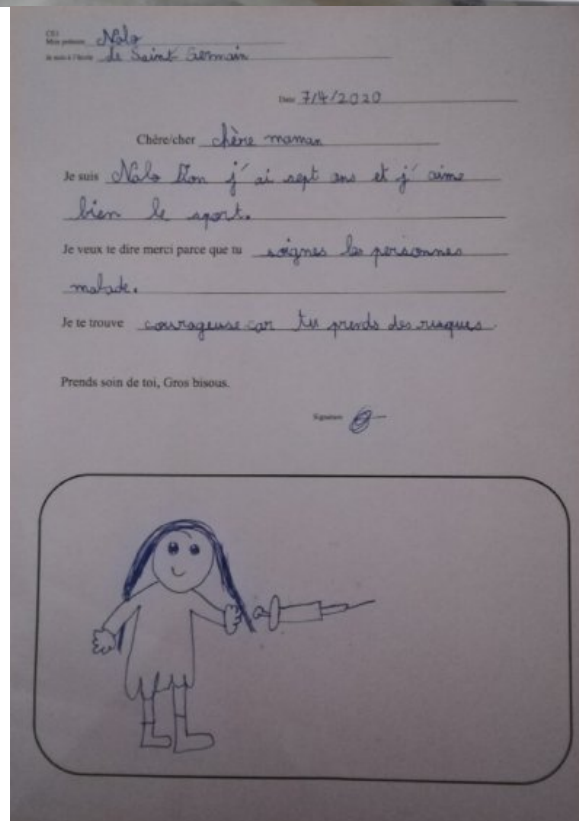 CE1
Mon prénom Nolo
Je suis à l'école de Saint Germain
Date 7/4/2020
Chère/cher chère maman
Je suis Nolo j'ai sept ans et j'aime
bien le sport.
Je veux te dire merci parce que tu soignes les personnes
malade.
Je te trouve courageuse car tu prends des risques.
Prends soin de toi, Gros bisous.
Signature